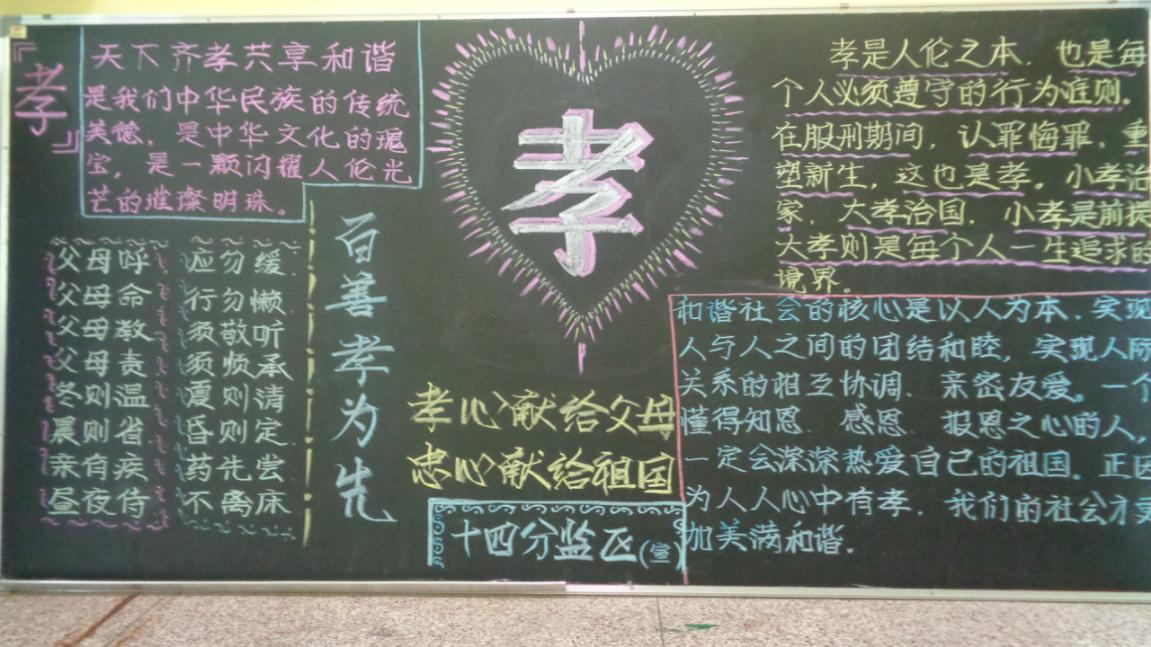 『孝』
天下齐孝共享和谐
是我们中华民族的传统
美德，是中华文化的瑰
宝，是一颗闪耀人伦光
芒的璀璨明珠。
父母呼 应勿缓
父母命 行勿懒
父母教 须敬听
父母责 须顺承
冬则温 夏则清
晨则省 昏则定
亲有疾 药先尝
昼夜侍 不离床
百善孝为先
孝
孝心献给父母
忠心献给祖国
十四分监区(宣)
孝是人伦之本．也是每
个人必须遵守的行为准则．
在服刑期间，认罪悔罪，重
塑新生，这也是孝。小孝治
家．大孝治国．小孝是前提
大孝则是每个人一生追求的
境界．
和谐社会的核心是以人为本．实现
人与人之间的团结和睦，实现人际
关系的相互协调．亲密友爱。一个
懂得知恩．感恩．报恩之心的人，
一定会深深热爱自己的祖国．正因
为人人心中有孝．我们的社会才更
加美满和谐．